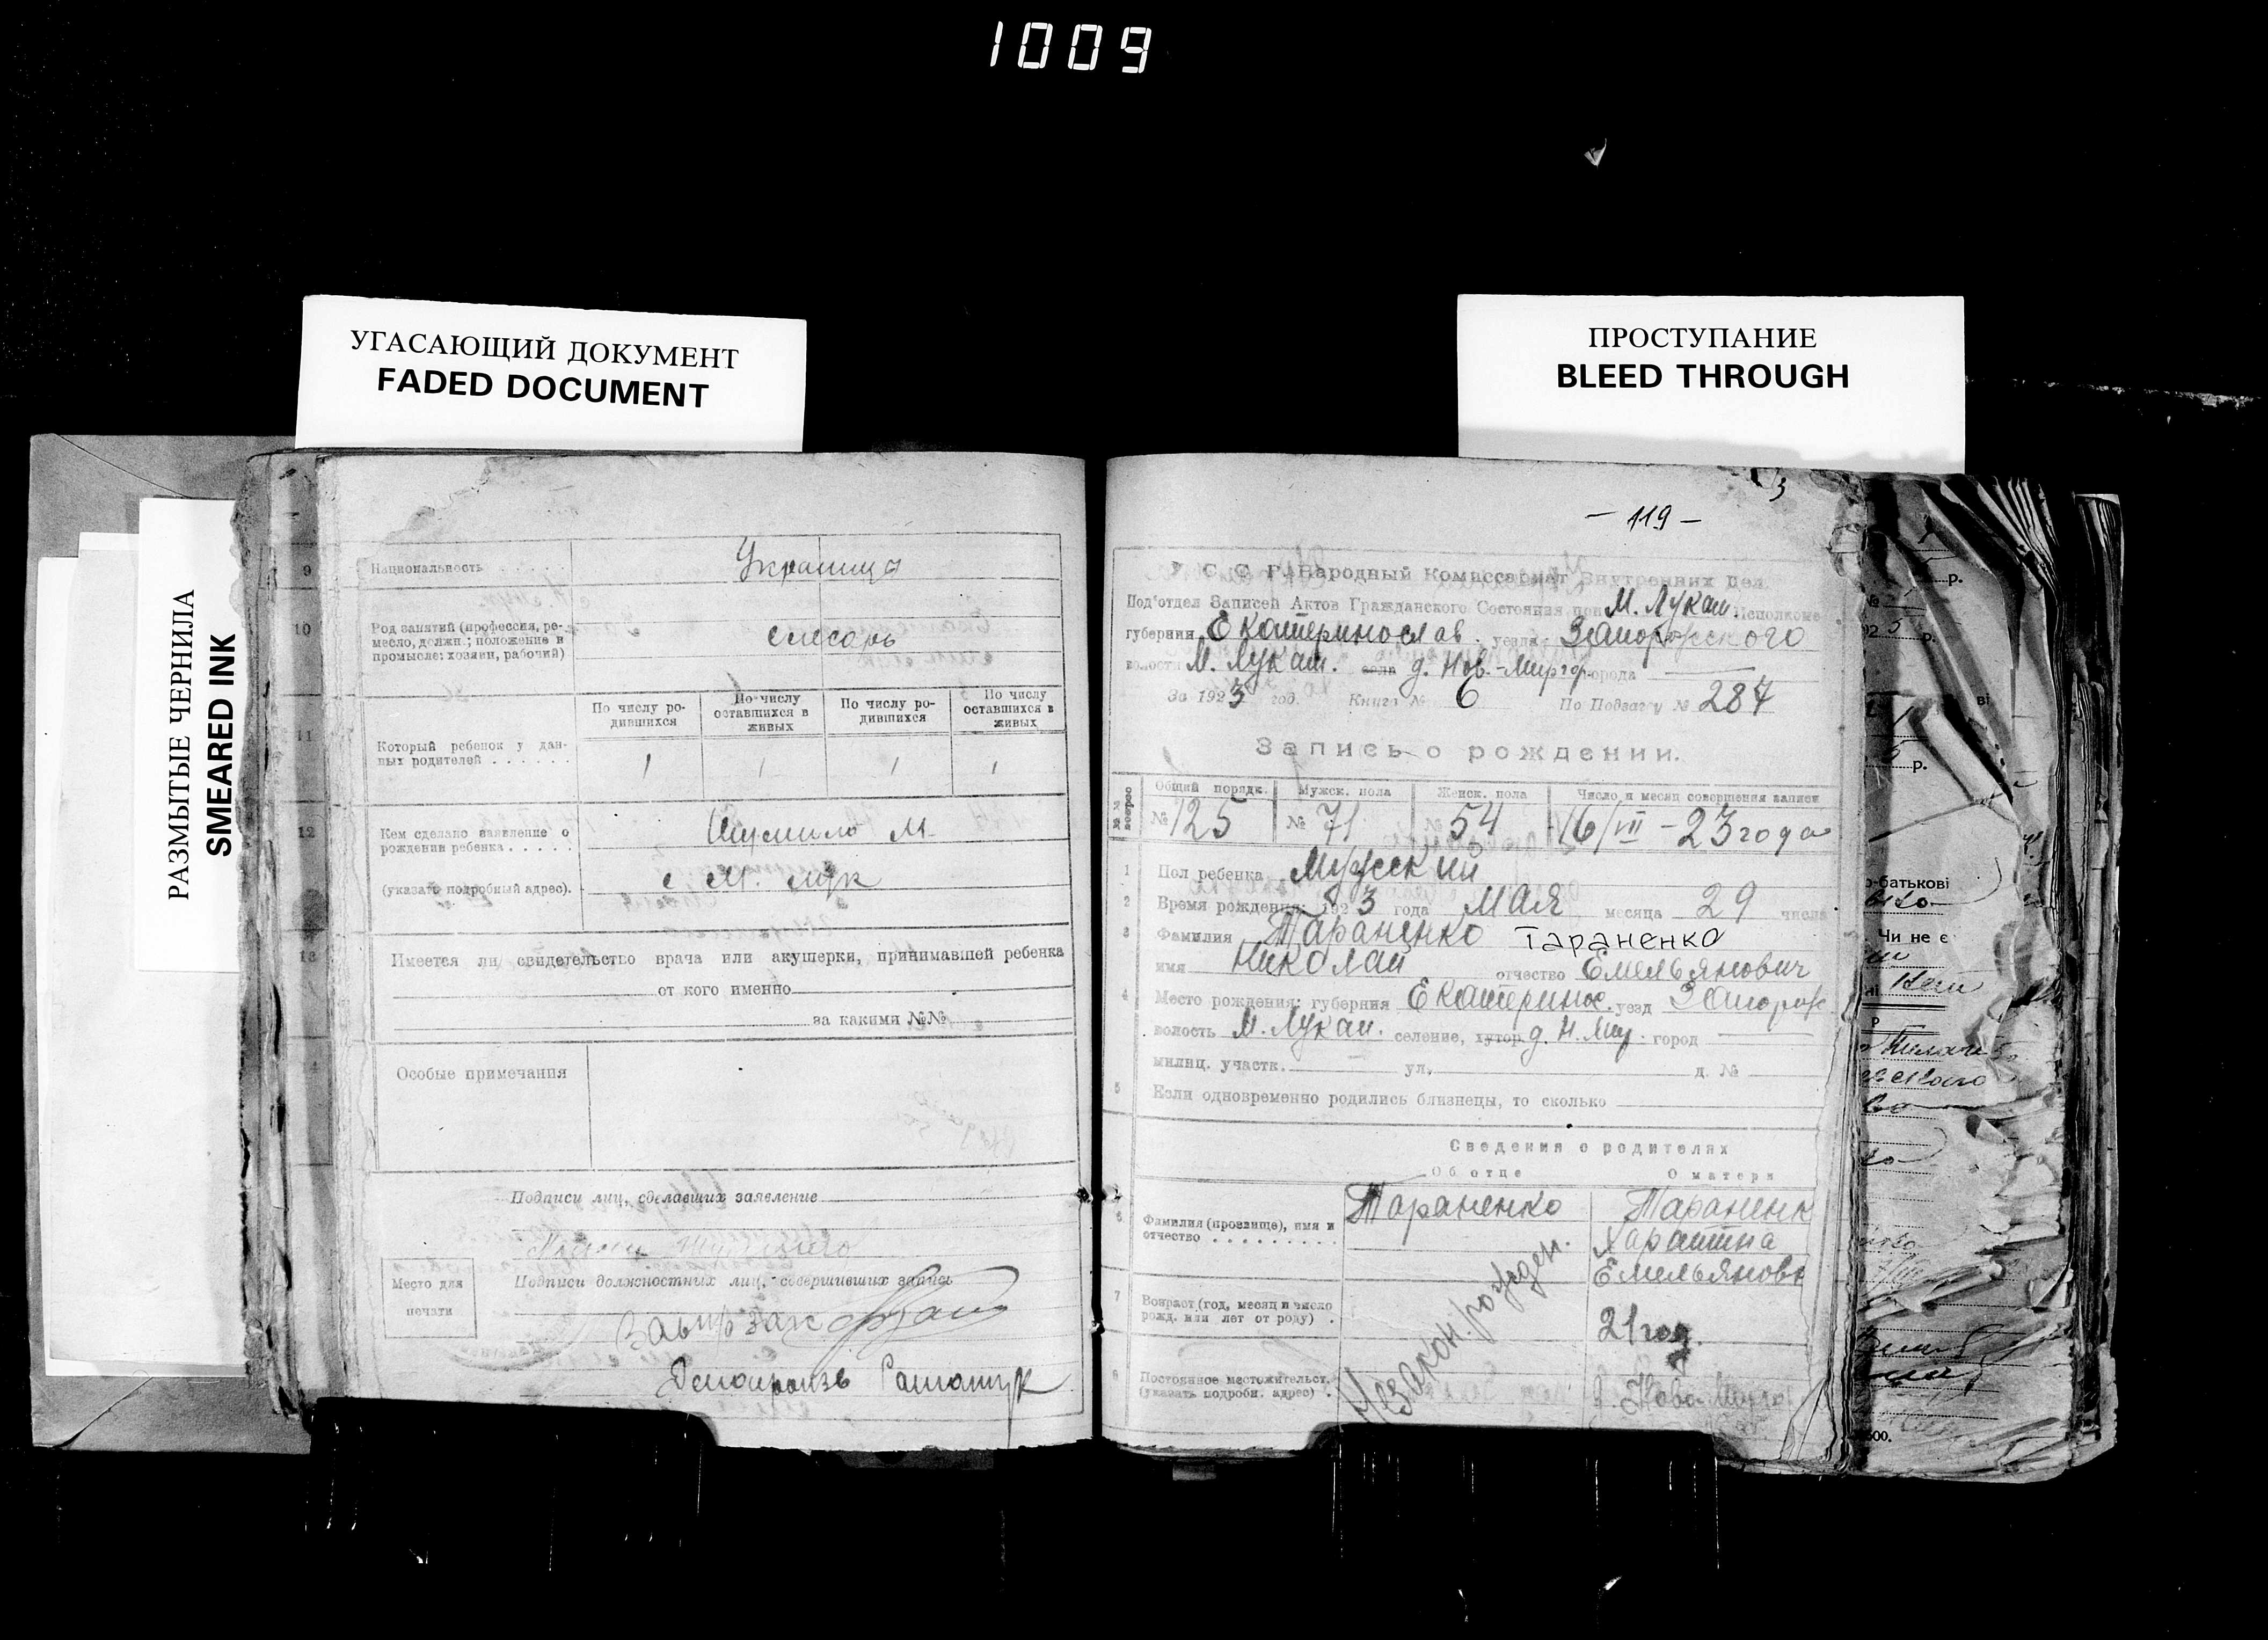 1009
УГАСАЮЩИЙ ДОКУМЕНТ
FADED DOCUMENT
ПРОСТУПАНИЕ
BLEED THROUGH
РАЗМЫТЫЕ ЧЕРНИЛА
SMEARED INK
9 Национальность . . . . . Украинцы
10 Род занятий (профессия, ре-
месло, должн.; положение в
промысле: хозяин, рабочий) слесарь
По числу ро-
дившихся
По числу
оставшихся в
живых
По числу ро-
дившихся
По числу
оставшихся в
живых
11 Который ребенок у дан-
ных родителей . . . . . . 1 1 1 1
12 Кем сделано заявление о
рождении ребенка . . . . . Шумило М.
(указать подробный адрес). с М. Лук
13 Имеется ли свидетельство врача или акушерки, принимавшей ребенка
от кого именно
за какими №№
Особые примечания
Подписи лиц, сделавших заявление
Место для
печати
Подписи должностных лиц, совершивших запись
— 119 —
У С С Р. Народный Комиссариат Внутренних Дел.
Под'отдел Записей Актов Гражданского Состояния при М. Лукаш. Исполкоме
губернии Екатеринослав. уезда Запорожского
волости М. Лукаш. села д. Нов.-Миргор. города —
За 1923 год. Книга № 6 По Подзагу № 287
Запись о рождении.
Общий порядк. Мужск. пола Женск. пола Число и месяц совершения записи
№ 125 № 71 54 16/VII - 23 года
1 Пол ребенка Мужский
2 Время рождения: 1923 года Мая месяца 29 числа
3 Фамилия Тараненко Тараненко
имя Николай отчество Емельянович
4 Место рождения: губерния Екатеринос. уезд Запорож.
волость М. Лукаш. селение, хутор д. Н. Мир. город —
милиц. участк. — ул. — д. № —
5 Если одновременно родились близнецы, то сколько
Сведения о родителях
Об отце О матери
6 Фамилия (прозвище), имя и
отчество . . . . . . . . .
Тараненко
Тараненк
Харитина
Емельяновн
7 Возраст (год, месяц и число
рожд. или лет от роду) . 21 год.
8 Постоянное местожительст.
(указать подробн. адрес) . д. Ново-Мирго
Незакон. рожден.